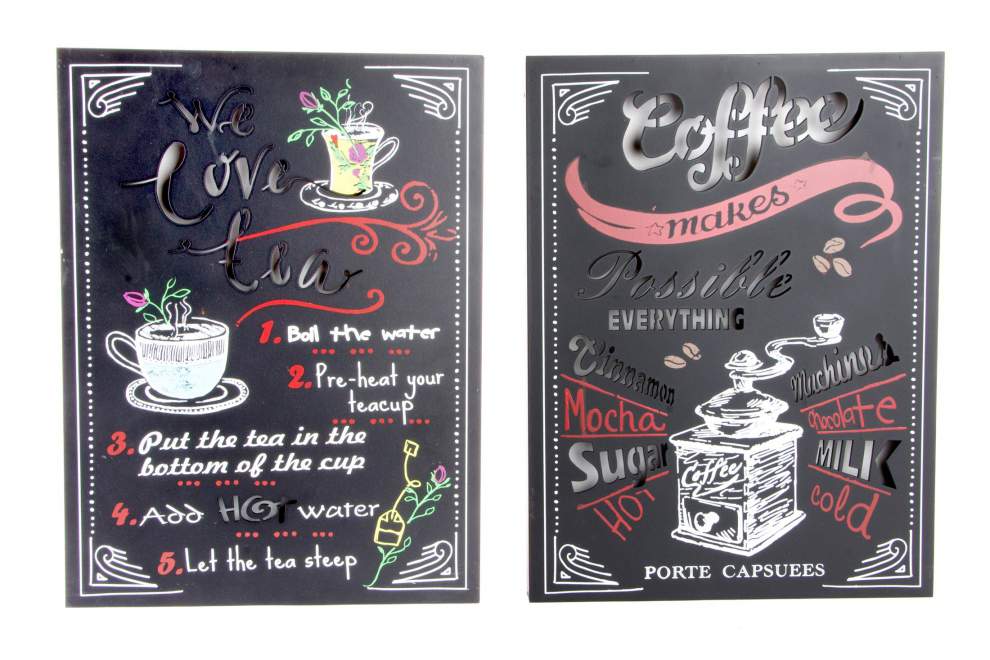 We
Love
tea
1. Boil the water
2. Pre-heat your
teacup
3. Put the tea in the
bottom of the cup
4. Add HOT water
5. Let the tea steep
Coffee
makes
Possible
EVERYTHING
Cinnamon
Mocha
Sugar
HOT
Machinuk
chocolate
MILK
cold
Coffee
PORTE CAPSUEES